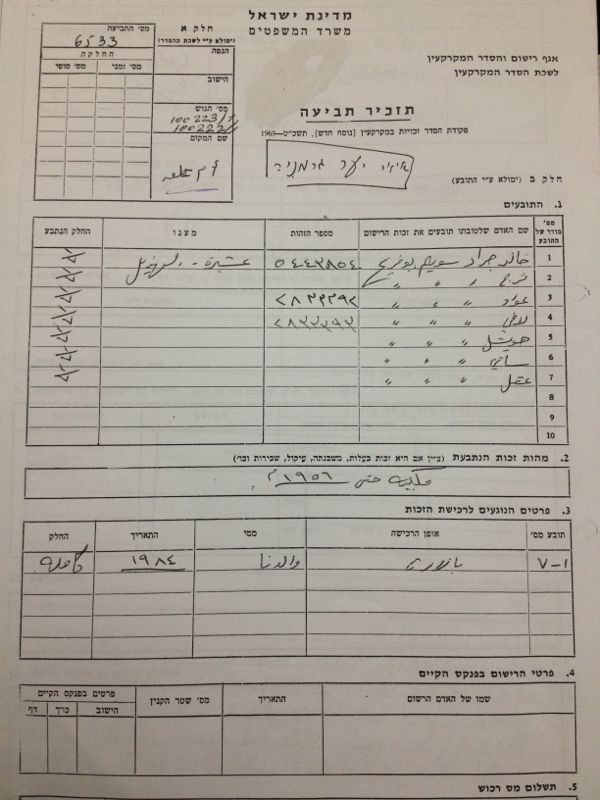 מדינת ישראל
משרד המשפטים
אגף רישום והסדר המקרקעין
לשכת הסדר המקרקעין
חלק א
(ימולא ע״י לשכת ההסדר)
מס׳ התביעה
6533
החלקה
מס׳ זמני
מס׳ סופי
הנפה
הישוב
מס׳ הגוש
שם המקום
תזכיר תביעה
פקודת הסדר זכויות במקרקעין [נוסח חדש], תשכ״ט—1969
חלק ב (ימולא ע״י התובע)
1. התובעים
מס׳ סודר של התובע
שם האדם שלטובתו תובעים את זכות הרישום
מספר הזהות
מענו
החלק הנתבע
1 خالد جراد سويلم ٥٤٤٣٨٥٤ عشيرة
2 " "
3 عواد " " ٢٨٣٢٣٩٢
4 " "
5 " "
6 " "
7 " "
8
9
10
2. מהות זכות הנתבעת (ציין אם היא זכות בעלות, משכנתה, עיקול, שכירות וכו׳)
ملكية حتى ١٩٥٦ م
3. פרטים הנוגעים לרכישת הזכות
תובע מס׳
אופן הרכישה
ממי
התאריך
החלק
١-٧ والدنا ١٩٨٤ كاملة
4. פרטי הרישום בפנקס הקיים
שמו של האדם הרשום
התאריך
מס׳ שטר הקנין
פרטים בפנקס הקיים
הישוב
כרך
דף
5. תשלום מס רכוש